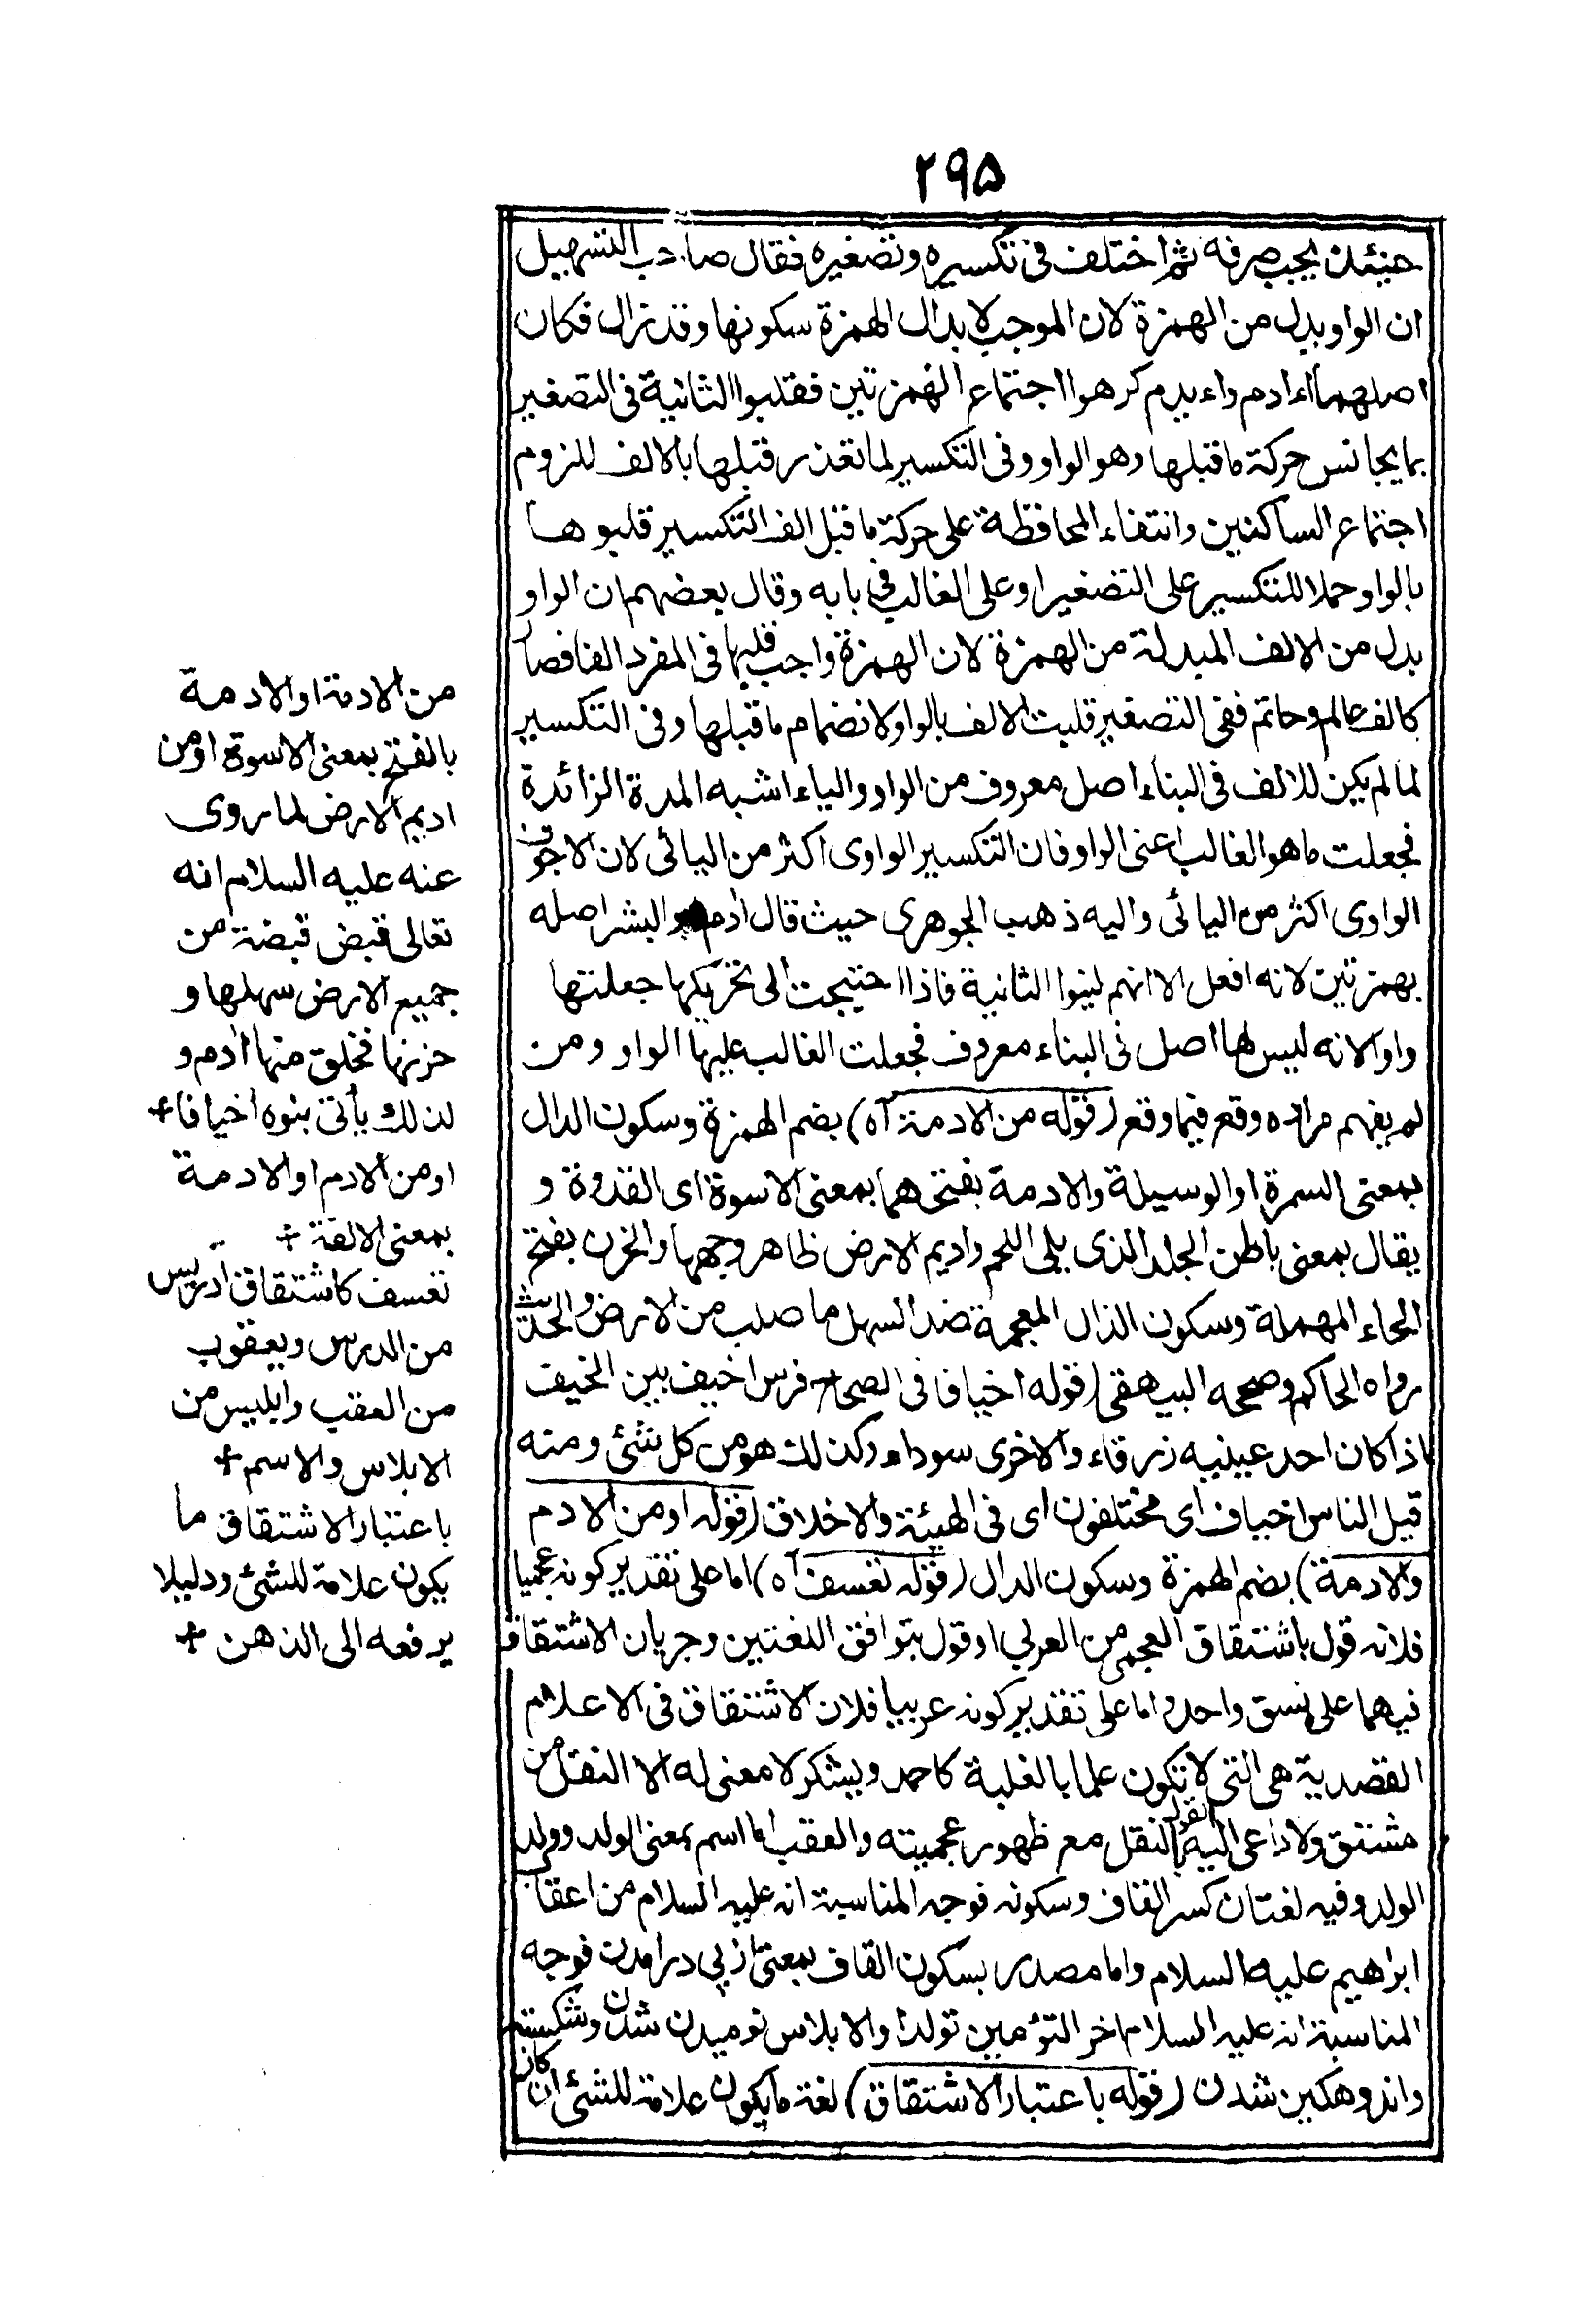 ۲۹۵
حینئذ یجب صرفه ثم اختلف فی تکسیره وتصغیره فقال صاحب التسهیل
ان الواو بدل من الهمزة لان الموجب لابدال الهمزة سکونها وقد زال فکان
اصلهما اءادم واءیدم کرهوا اجتماع الهمزتین فقلبوا الثانیة فی التصغیر
بما یجانس حرکة ما قبلها وهو الواو وفی التکسیر لما تعذر قبلها بالالف للزوم
اجتماع الساکنین وانتفاء المحافظة علی حرکة ما قبل الف التکسیر قلبوها
بالواو حملا للتکسیر علی التصغیر او علی الغالب فی بابه وقال بعضهم ان الواو
بدل من الالف المبدلة من الهمزة لان الهمزة واجب قلبها فی المفرد الفا فصار
کالف عالم وحاتم ففی التصغیر قلبت الالف بالواو لانضمام ما قبلها وفی التکسیر
لما لم یکن للالف فی البناء اصل معروف من الواو والیاء اشبه المدة الزائدة
فجعلت ما هو الغالب اعنی الواو فان التکسیر الواوی اکثر من الیائی لان الاجوف
الواوی اکثر من الیائی والیه ذهب الجوهری حیث قال ادم ابو البشر اصله
بهمزتین لانه افعل الا انهم لینوا الثانیة فاذا احتیجت الی تحریکها جعلتها
واوا لانه لیس لها اصل فی البناء معروف فجعلت الغالب علیها الواو ومن
لم یفهم مراده وقع فیما وقع (قوله من الادمة آه) بضم الهمزة وسکون الدال
بمعنی السمرة او الوسیلة والادمة بفتحهما بمعنی الاسوة ای القدوة و
یقال بمعنی باطن الجلد الذی یلی اللحم وادیم الارض ظاهر وجهها والحزن بفتح
الحاء المهملة وسکون الذال المعجمة ضد السهل ما صلب من الارض والحدیث
رواه الحاکم وصححه البیهقی (قوله اخیافا فی الصحاح فرس اخیف بین الخیف
اذا کان احد عینیه زرقاء والاخری سوداء وکذلک هو من کل شئ ومنه
قیل الناس اخیاف ای مختلفون ای فی الهیئة والاخلاق (قوله او من الادم
والادمة) بضم الهمزة وسکون الدال (قوله تعسف آه) اما علی تقدیر کونه عجمیا
فلانه قول باشتقاق العجمی من العربی او قول بتوافق اللغتین وجریان الاشتقاق
فیهما علی نسق واحد واما علی تقدیر کونه عربیا فلان الاشتقاق فی الاعلام
القصدیة هی التی لا تکون علما بالغلبة کاحمد ویشکر لا معنی له الا النقل من
مشتق ولا داعی الیه القول بالنقل مع ظهور عجمیته والعقب اما اسم بمعنی الولد وولد
الولد وفیه لغتان کسر القاف وسکونه فوجه المناسبة انه علیه السلام من اعقاب
ابراهیم علیه السلام واما مصدر بسکون القاف بمعنی از پی درامدن فوجه
المناسبة انه علیه السلام اخر التؤمین تولدا والابلاس نومیدن شدن وشکسته
واندوهکین شدن (قوله باعتبار الاشتقاق) لغة ما یکون علامة للشئ ان کان
من الادمة او الادمة
بالفتح بمعنی الاسوة او من
ادیم الارض لما روی
عنه علیه السلام انه
تعالی قبض قبضة من
جمیع الارض سهلها و
حزنها فخلق منها ادم و
لذلک یأتی بنوه اخیافا +
او من الادم او الادمة
بمعنی الالفة +
تعسف کاشتقاق ادریس
من الدرس ویعقوب
من العقب وابلیس من
الابلاس والاسم +
باعتبار الاشتقاق ما
یکون علامة للشئ ودلیلا
یرفعه الی الذهن +